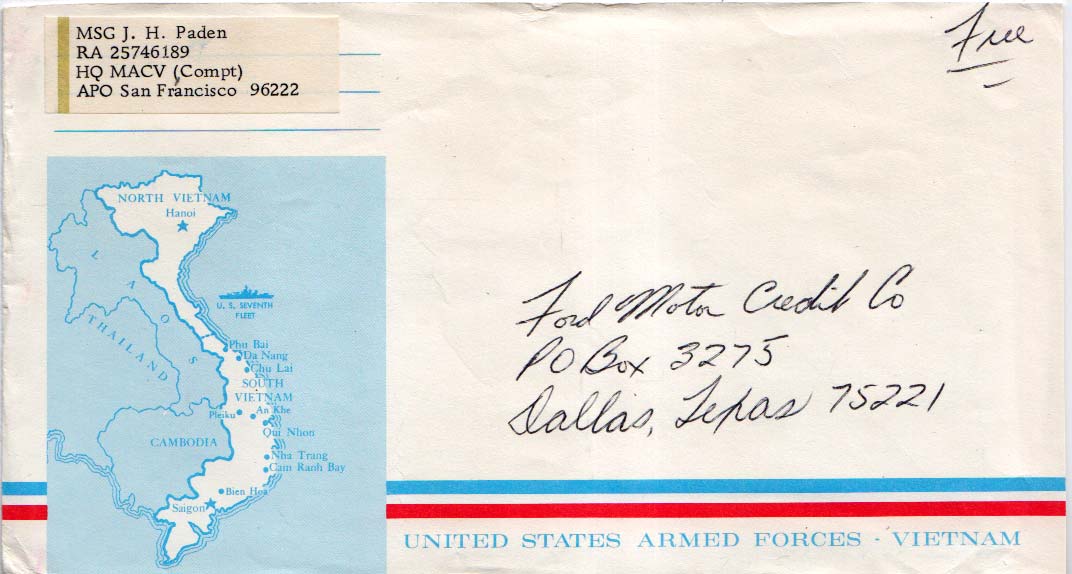 MSG J. H. Paden
RA 25746189
HQ MACV (Compt)
APO San Francisco 96222
Free
NORTH VIETNAM
Hanoi
LAOS
THAILAND
U. S. SEVENTH
FLEET
Phu Bai
Da Nang
Chu Lai
SOUTH
VIETNAM
Pleiku
An Khe
Qui Nhon
CAMBODIA
Nha Trang
Cam Ranh Bay
Bien Hoa
Saigon
Ford Motor Credit Co
PO Box 3275
Dallas, Texas 75221
UNITED STATES ARMED FORCES · VIETNAM